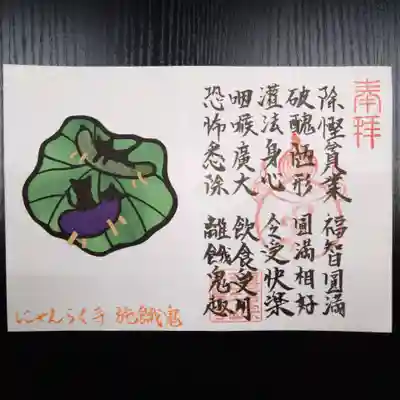 奉拝
除慳貪業 福智圓滿
破醜陋形 圓滿相好
灑法身心 令受快楽
咽喉廣大 飲食受用
恐怖悉除 離餓鬼趣
にゃんらく寺 施餓鬼